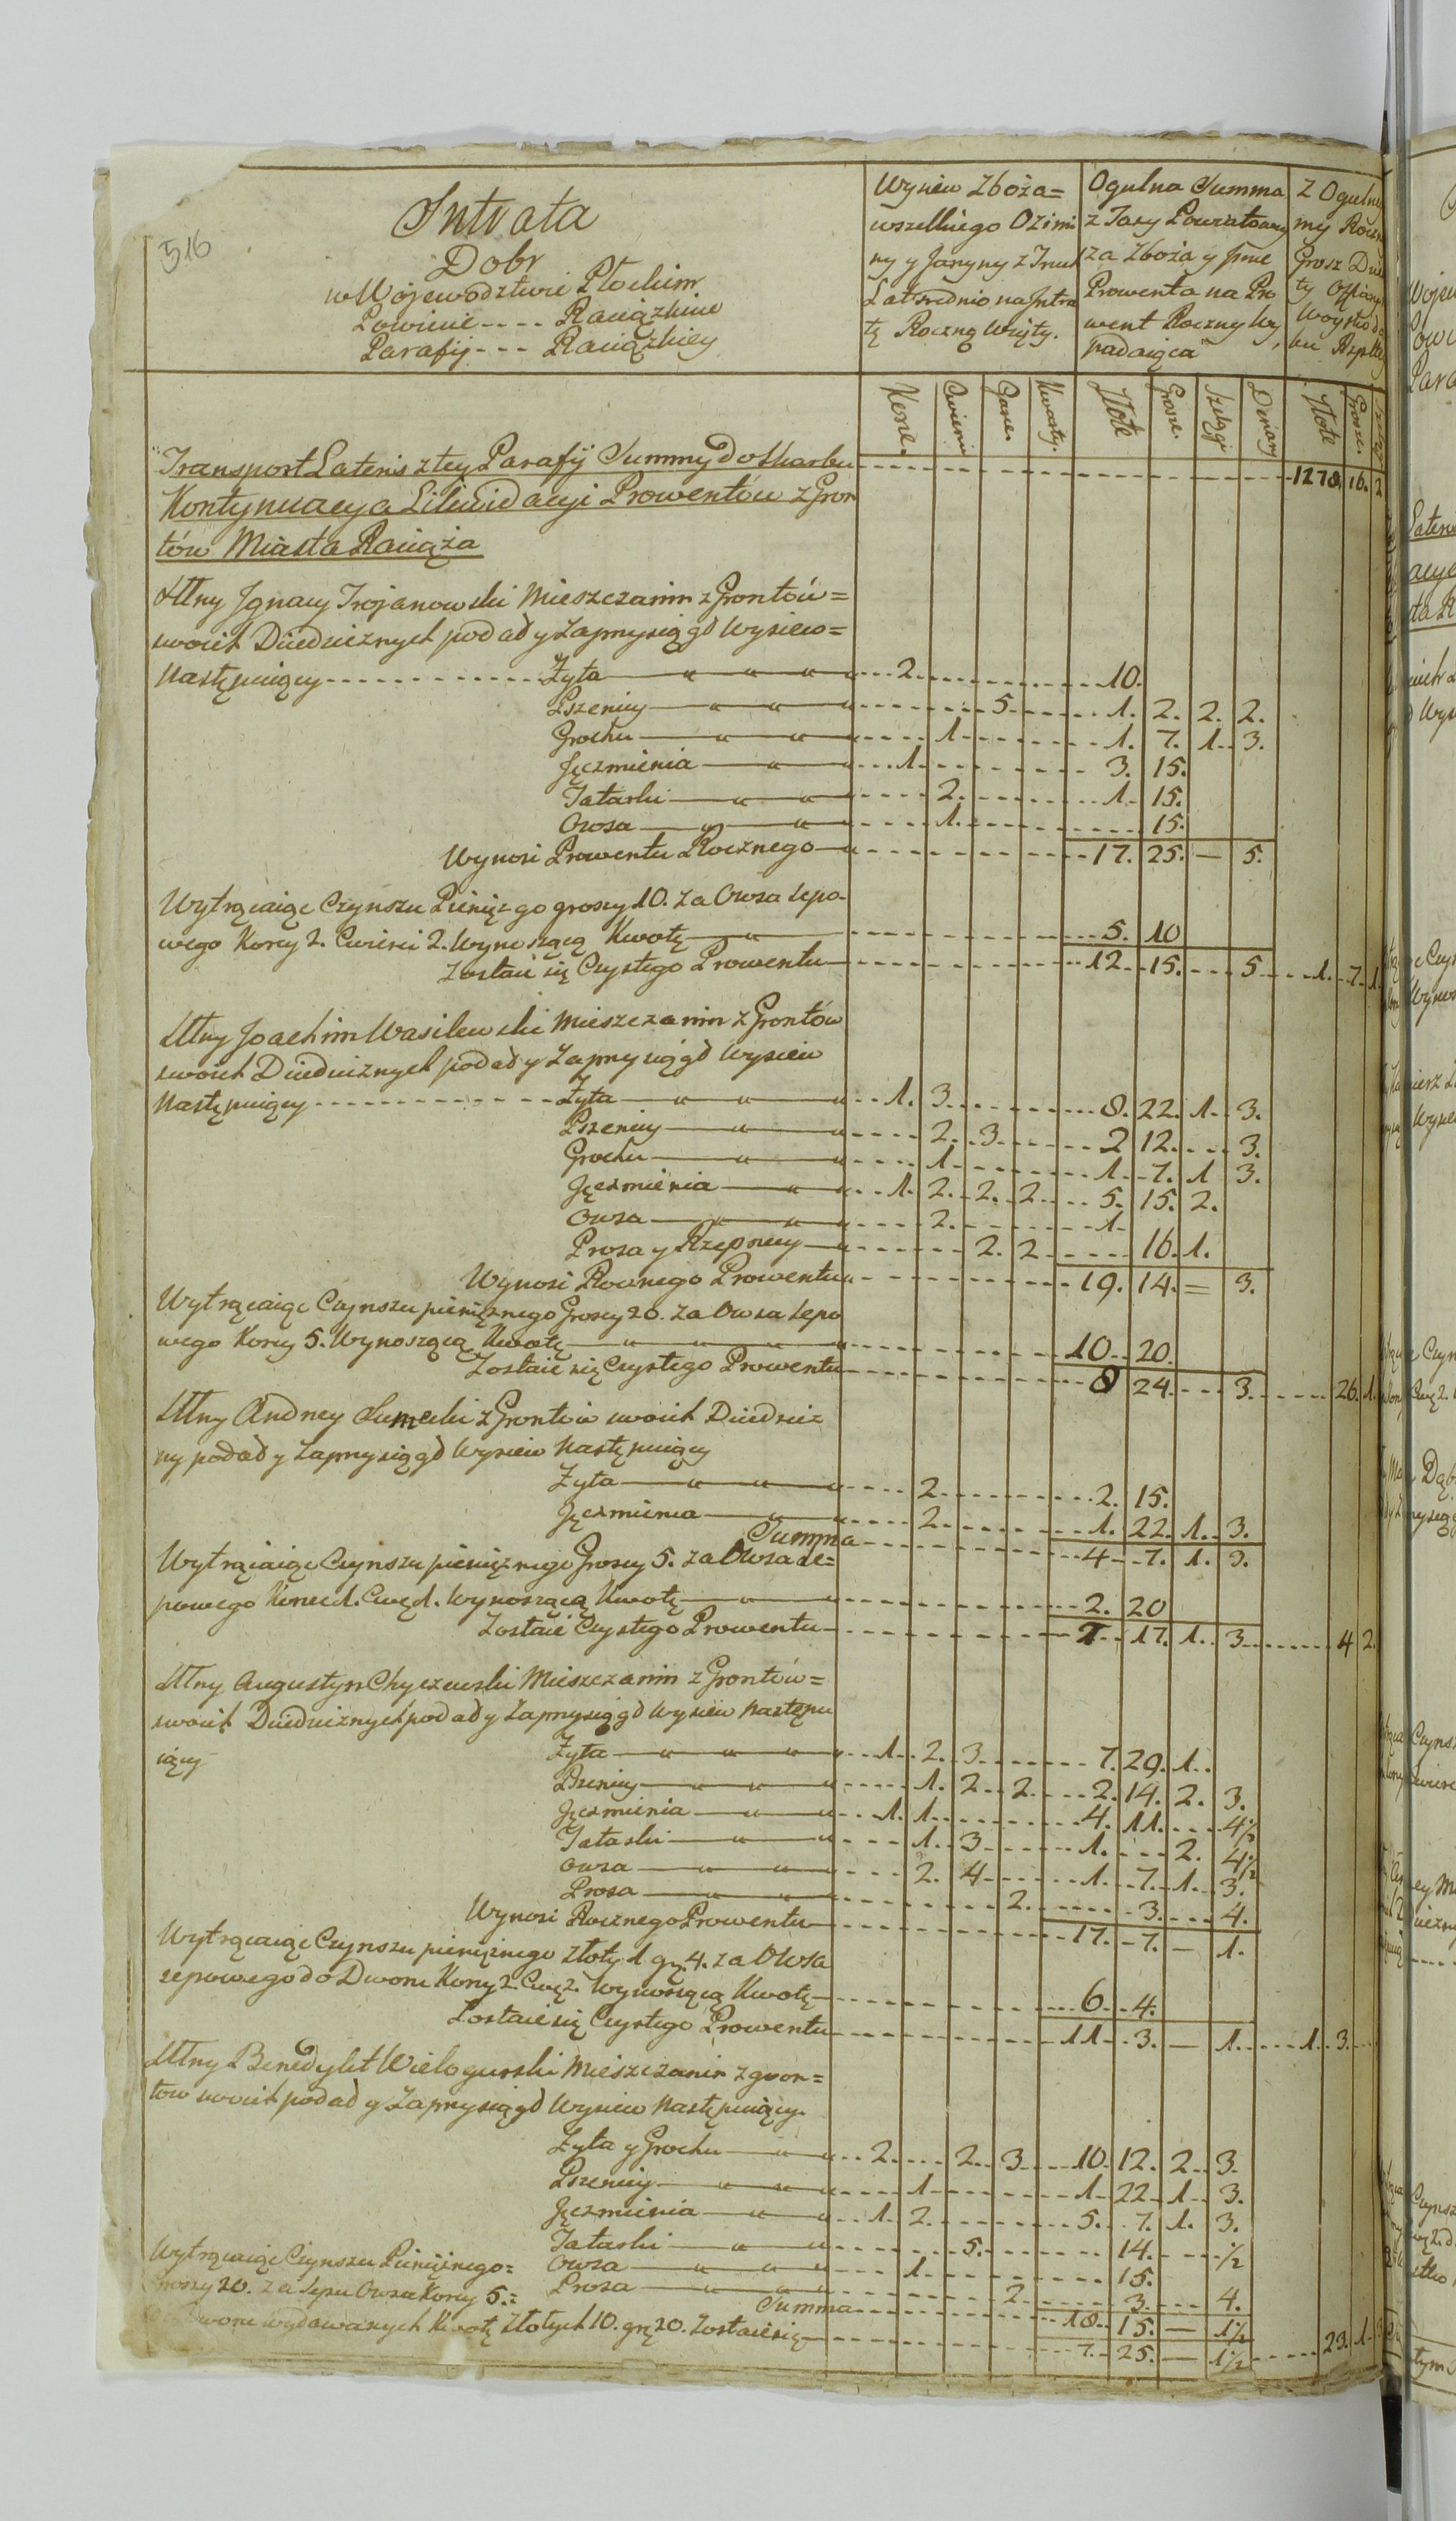 516
Intrata
Dobr
w Wojewodztwie Płockim
Powiecie - - - - Raciązkim
Parafij - - - Raciązkiey
Wysiew Zboża=
wszelkiego Ozimi
ny y Jaryny z Trzech
Lat srednio na Intra
tę Roczną Wzięty.
Ogulna Summa
z Taxy Powiatowey
za Zboża y Jnne
Prowenta na Pro
went Roczny Wy
padaiąca
Z Ogulney
my Roczn
Grosz Dzie
ty Offiary
Woysko do
bu Rzpltey
Korce. Cwierci Garce. Kwarty. Złote Grosze. Szelągi Denary Złote Grosze.
Transport Lateris z tey Parafij Summy do Skarbu 1278. 16. 2
Kontynuacya Likwidacyi Prowentów z Gron
tów Miasta Raciąża
Uttny Jgnacy Trojanowski Mieszczanin z Grontów=
swoich Dziedzicznych podał y Zaprzysiągł Wysiew=
Następuiący Zyta 2. 10.
Pszenicy 5 1. 2. 2. 2.
Grochu 1 1. 7. 1. 3.
Jęczmienia 1. 3. 15.
Tatarki 2. 1. 15.
Owsa 1. 15.
Wynosi Prowentu Rocznego 17. 25. — 5.
Wytrącaiąc Czynszu Pienięzgo groszy 10. za Owsa sepo-
wego Korcy 2. Cwierci 2. Wynoszącą Kwotę 5. 10
Zostaie się Czystego Prowentu 12. 15. 5 1. 7. 1.
Uttny Joachim Wasilewski Mieszczanin z Grontów
swoich Dziedzicznych podał y Zaprzysiągł Wysiew
Następuiący Żyta 1. 3. 8. 22. 1. 3.
Pszenicy 2. 3 2 12. 3.
Grochu 1 1. 7. 1 3.
Jęczmienia 1. 2. 2. 2. 5. 15. 2.
Owsa 2. 1.
Prosa y Rzepnicy 2. 2 16. 1.
Wynosi Rocznego Prowentu 19. 14. = 3.
Wytrącaiąc Czynszu pienięznego Groszy 20. za Owsa sepo
wego Korcy 5. Wynoszącą Kwotę 10. 20.
Zostaie się Czystego Prowentu 8 24. 3. 26. 1.
Uttny Andrzey Sumecki z Grontów swoich Dziedzicz
ny podał y Zaprzysiągł Wysiew Następuiący
Zyta 2 2. 15.
Jęczmienia 2. 1. 22. 1. 3.
Summa 4 7. 1. 3.
Wytrąciaiąc Czynszu pienięznego Groszy 5. za Owsa se=
powego Korzec 1. Cwę 1. Wynoszącą Kwotę 2. 20
Zostaie Czystego Prowentu 1 17. 1. 3 4 2.
Uttny Augustyn Chyczewski Mieszczanin z Grontów=
swoich Dziedzicznych podał y Zaprzysiągł Wysiew Następu
iący Zyta 1. 2. 3 7. 29. 1.
Pszenicy 1. 2 2 2. 14. 2. 3.
Jęczmienia 1. 1. 4. 11. 4½
Tatarki 1. 3 1. 2. 4½
owsa 2. 4 1. 7. 1. 3.
Prosa 2. 3. 4.
Wynosi Rocznego Prowentu 17. 7. — 1.
Wytrącaiąc Czynszu pienięznego złoty 1 gr. 4. za Owsa
sepowego do Dworu Korcy 2. Cwę 2. Wynoszącą Kwotę 6. 4.
Zostaie się Czystego Prowentu 11. 3. — 1. 1. 3.
Uttny Benedykt Wielogurski Mieszczanin z gron=
tow swoich podał y Zaprzysiągł Wysiew Następuiący.
Zyta y Grochu 2. 2. 3 10. 12. 2 3.
Pszenicy 1 1. 22 1. 3.
Jęczmienia 1. 2. 5. 7. 1. 3.
Tatarki 5. 14. ½
Wytrącaiąc Czynszu Pienięznego= owsa 1. 15.
Groszy 20. za sepu Owsa Korcy 5.= Prosa 2 3. 4.
Summa 18. 15. — 1½
Dworu wydawanych Kwotę Złotych 10. grz 20. Zostaie się 7. 25. — 1½ 23. 1.